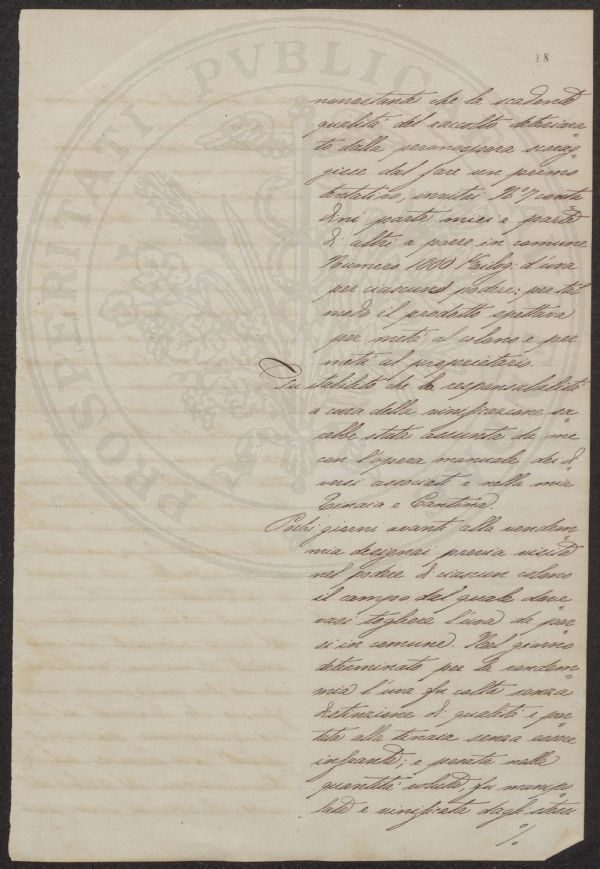 18
PROSPERITATI PVBLIC
nonostante che la scadente
qualità del raccolto deteriora=
to dalla peronospora scorag=
gisse dal fare un primo
tentativo, invitai N° 7 conta=
dini parte miei e parte
di altri a porre in comune
Numero 1000 Kilog: d'uva
per ciascuno podere; per tal
modo il prodotto spettava
per metà al colono e per
metà al proprietario.
Fu stabilito che la responsabilità
e cura della vinificazione sa=
rebbe stata assunta da me
con l'opera manuale dei di=
versi associati e nella mia
Tinaia e Cantina.
Pochi giorni avanti alla vendem=
mia designai previa visita
nel podere di ciascun colono
il campo del quale dove=
vasi togliere l'uva da por=
si in comune. Nel giorno
determinato per la vendem=
mia l'uva fu colta senza
distinzione di qualità e por=
tata alla tinaia senza essere
infranta; e pesata nelle
quantità volute, fu manipo=
lata e vinificata dagli stessi
%